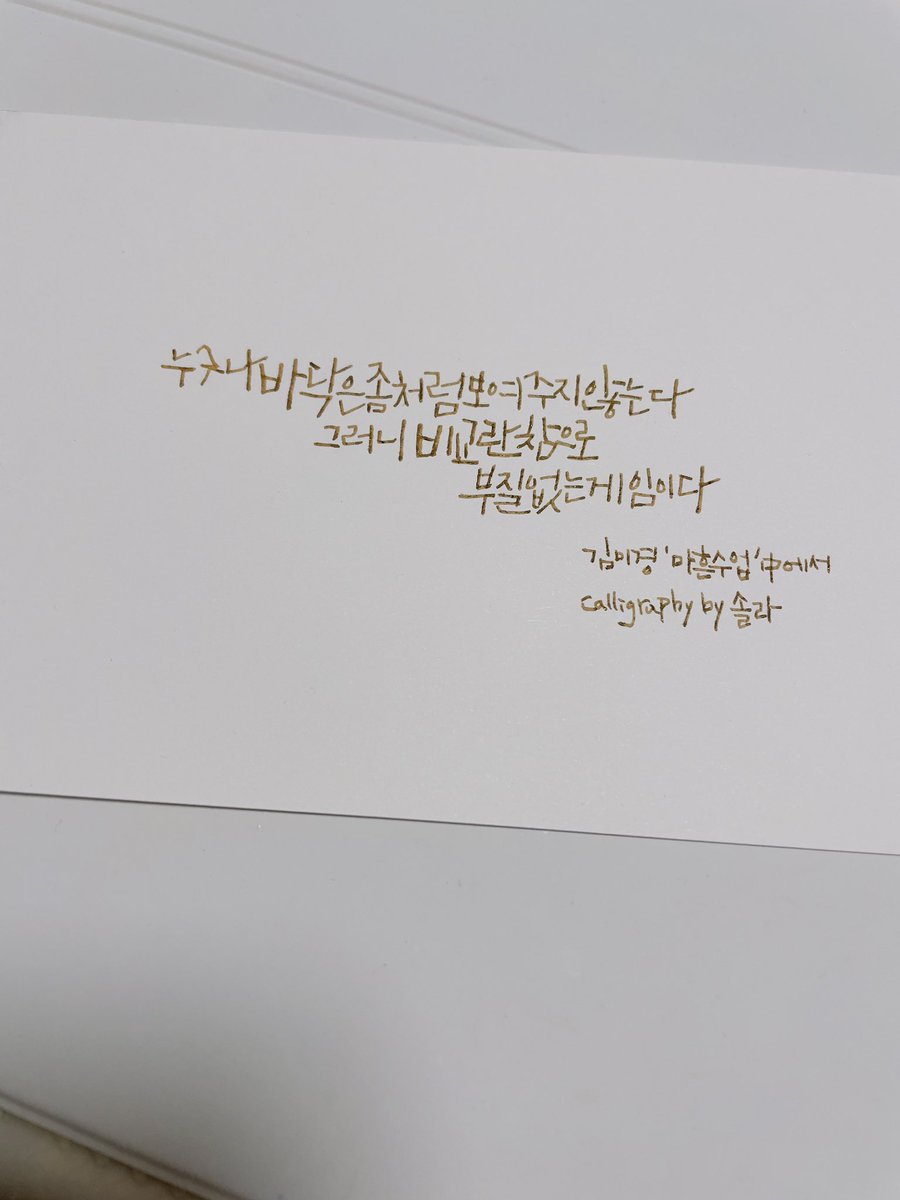 누구나 바닥은 좀처럼 보여주지 않는다
그러니 비교란 참으로
부질없는 게임이다
김미경 '마흔수업' 中에서
calligraphy by 솔라